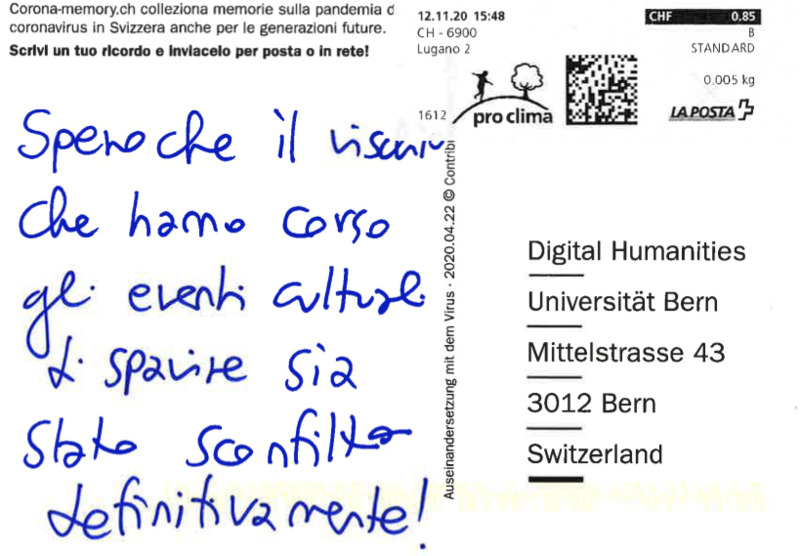 Corona-memory.ch colleziona memorie sulla pandemia d
coronavirus in Svizzera anche per le generazioni future.
Scrivi un tuo ricordo e inviacelo per posta o in rete!
Spero che il rischio
che hanno corso
gli eventi culturali
di sparire sia
stato sconfitto
definitivamente!
12.11.20 15:48
CH - 6900
Lugano 2
CHF 0.85
B
STANDARD
0.005 kg
1612
pro clima
LA POSTA
Auseinandersetzung mit dem Virus · 2020.04.22 © Contribi
Digital Humanities
Universität Bern
Mittelstrasse 43
3012 Bern
Switzerland